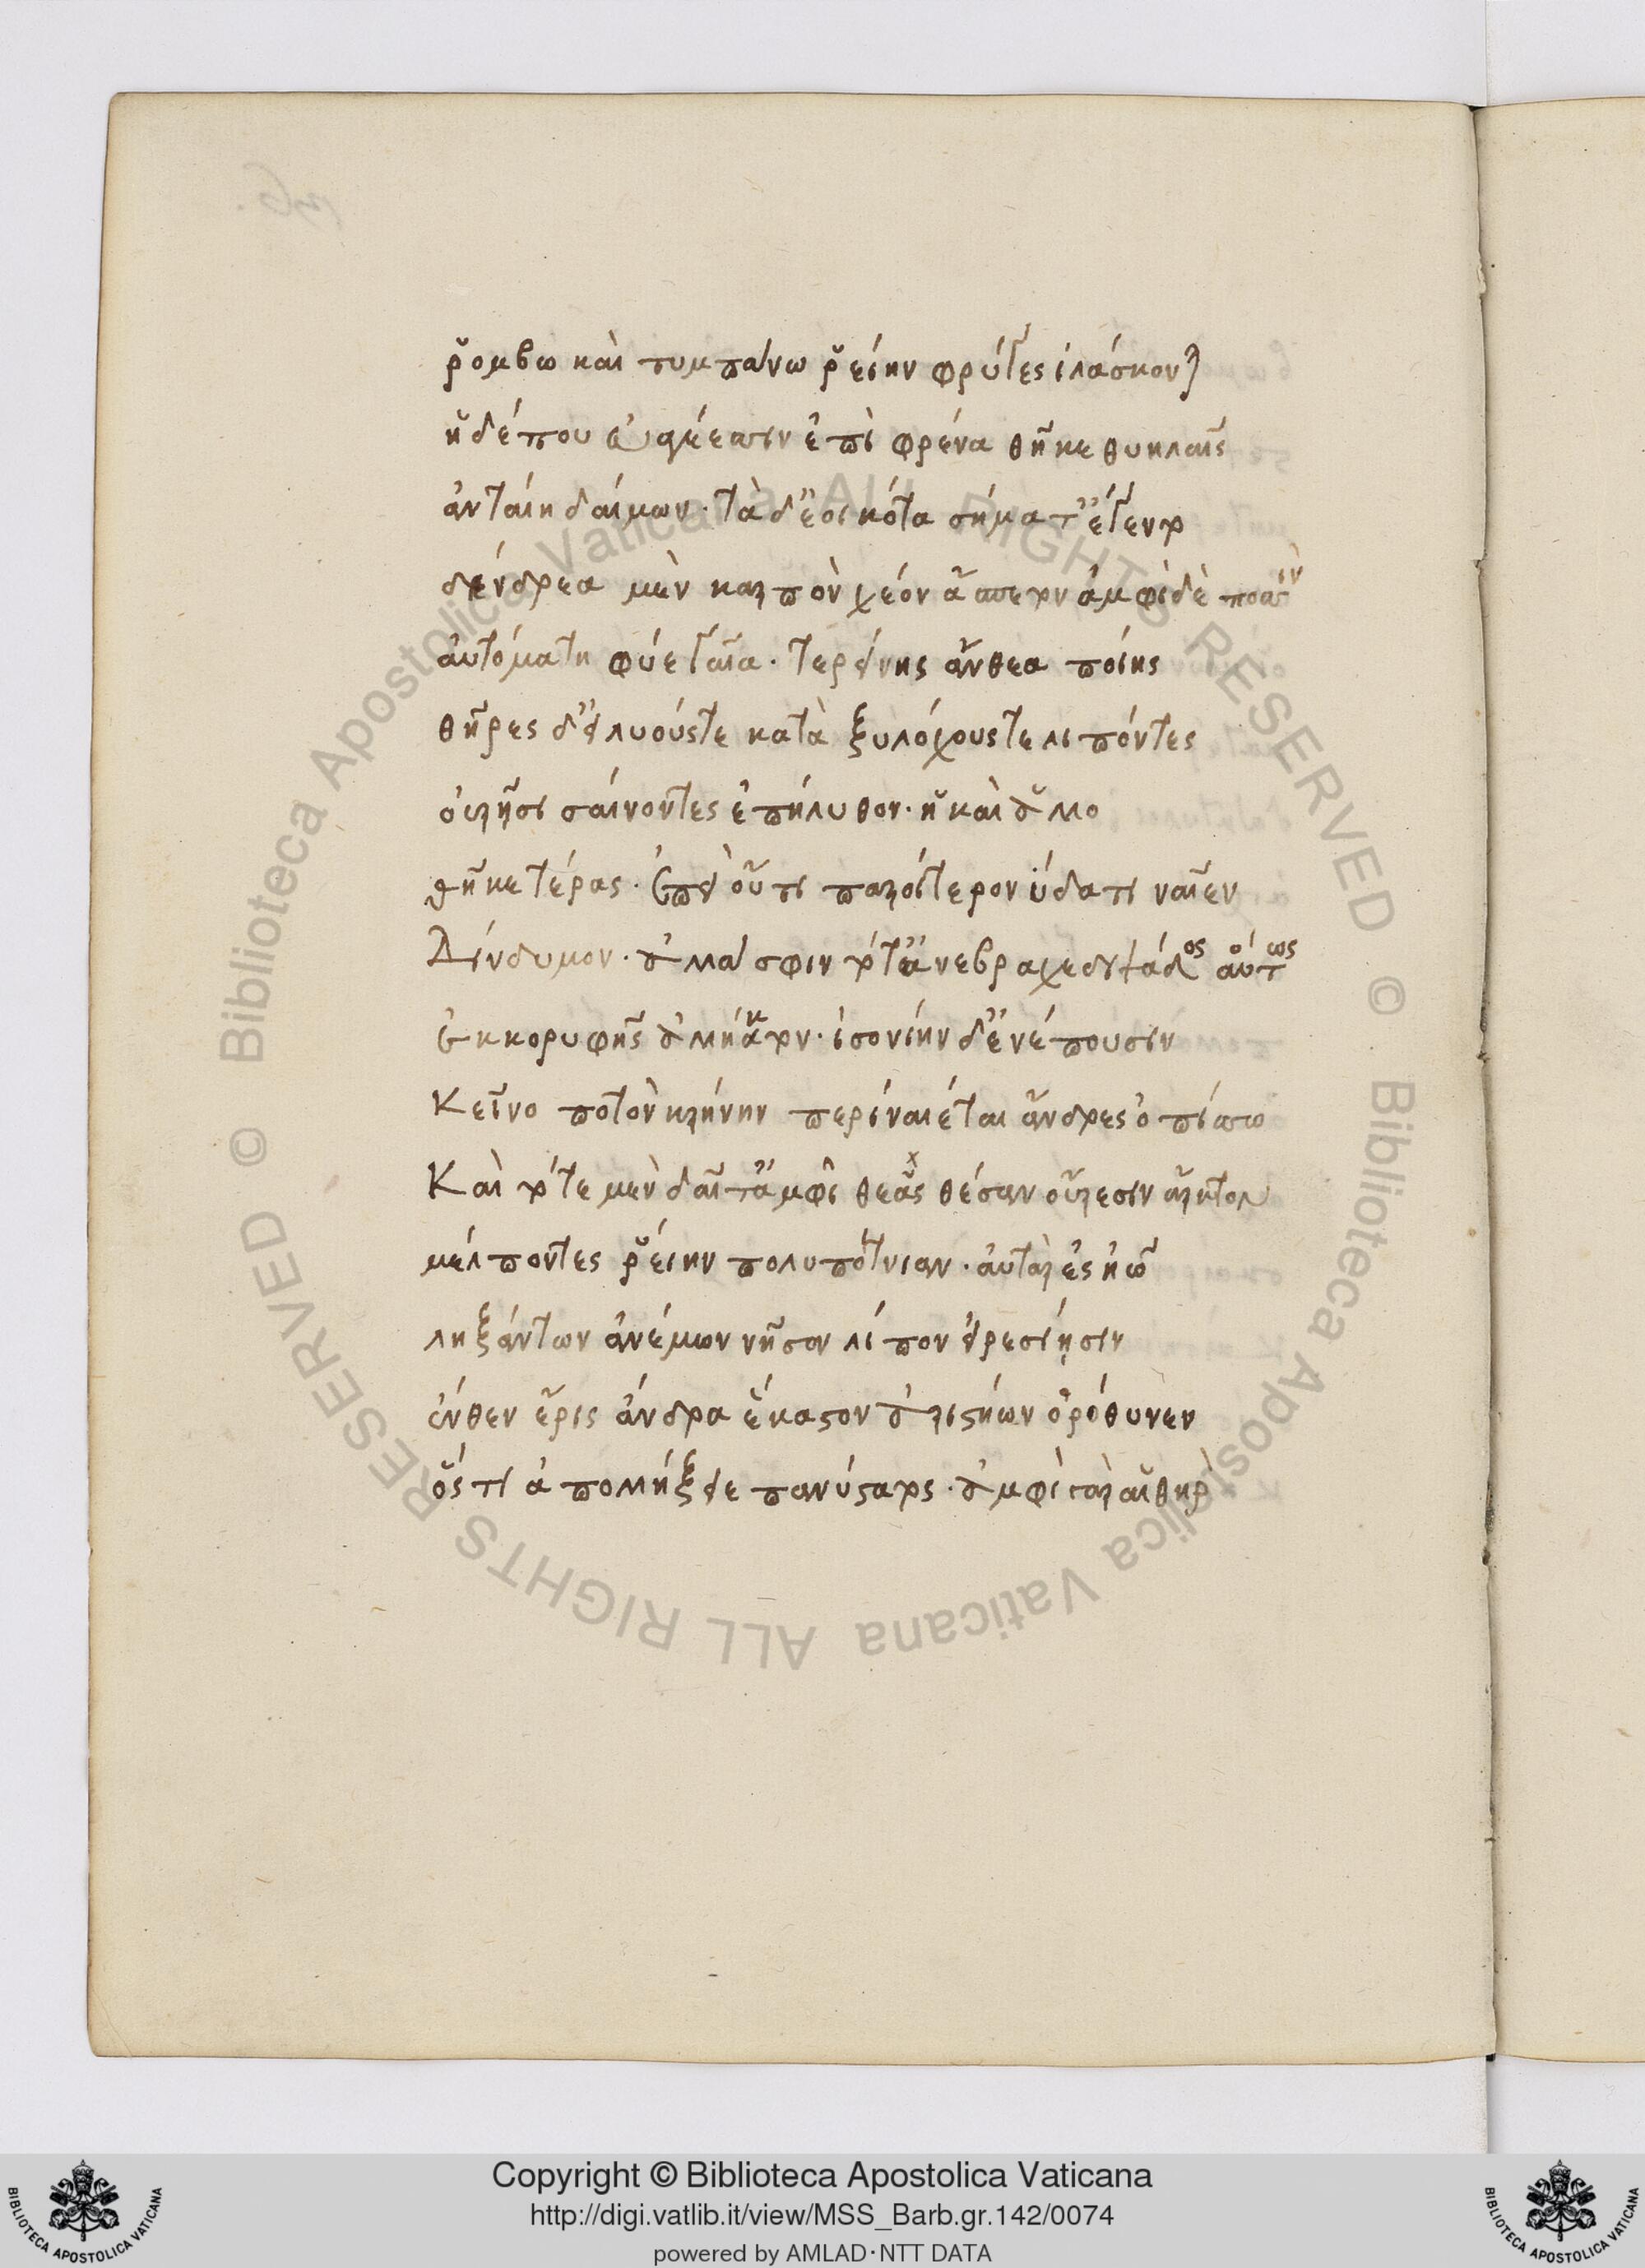 ῥόμβω καὶ τυμπάνω ῥείην φρύγες ἱλάσκονται
ἡ δέ που εὐαγέεσσιν ἐπὶ φρένα θῆκε θυηλαῖς
ἀνταίη δαίμων· τὰ δ' ἐοικότα σήματ' ἔγεντο
δένδρεα μὲν καρπὸν χέον ἄσπετον ἀμφὶ δὲ ποσσὶν
αὐτομάτη φύε γαῖα· τερείνης ἄνθεα ποίης
θῆρες δ' εἰλυούς τε κατὰ ξυλόχους τε λιπόντες
οὐρῆσι σαίνοντες ἐπήλυθον· ἡ καὶ ἄλλο
θῆκε τέρας· ἐπεὶ οὔτι παροίτερον ὕδατι ναῖεν
Δίνδυμον· ἀλλά σφιν τότ' ἀνέβραχε διψάδος αὔτως
ἐκ κορυφῆς ἄλληκτον· ἰησονίην δ' ἐνέπουσιν
Κεῖνο ποτὸν κρήνην περιναιέται ἄνδρες ὀπίσσω
Καὶ τότε μὲν δαῖτ' ἀμφὶ θεᾶς θέσαν οὔρεσιν ἄρκτων
μέλποντες ῥείην πολυπότνιαν· αὐτὰρ ἐς ἠῶ
ληξάντων ἀνέμων νῆσον λίπον εἰρεσίῃσιν
ἔνθεν ἔρις ἄνδρα ἕκαστον ἀριστήων ὀρόθυνεν
ὅστις ἀπολλήξειε πανύστατος· ἀμφὶ γὰρ αἰθὴρ
Copyright © Biblioteca Apostolica Vaticana
http://digi.vatlib.it/view/MSS_Barb.gr.142/0074
powered by AMLAD·NTT DATA